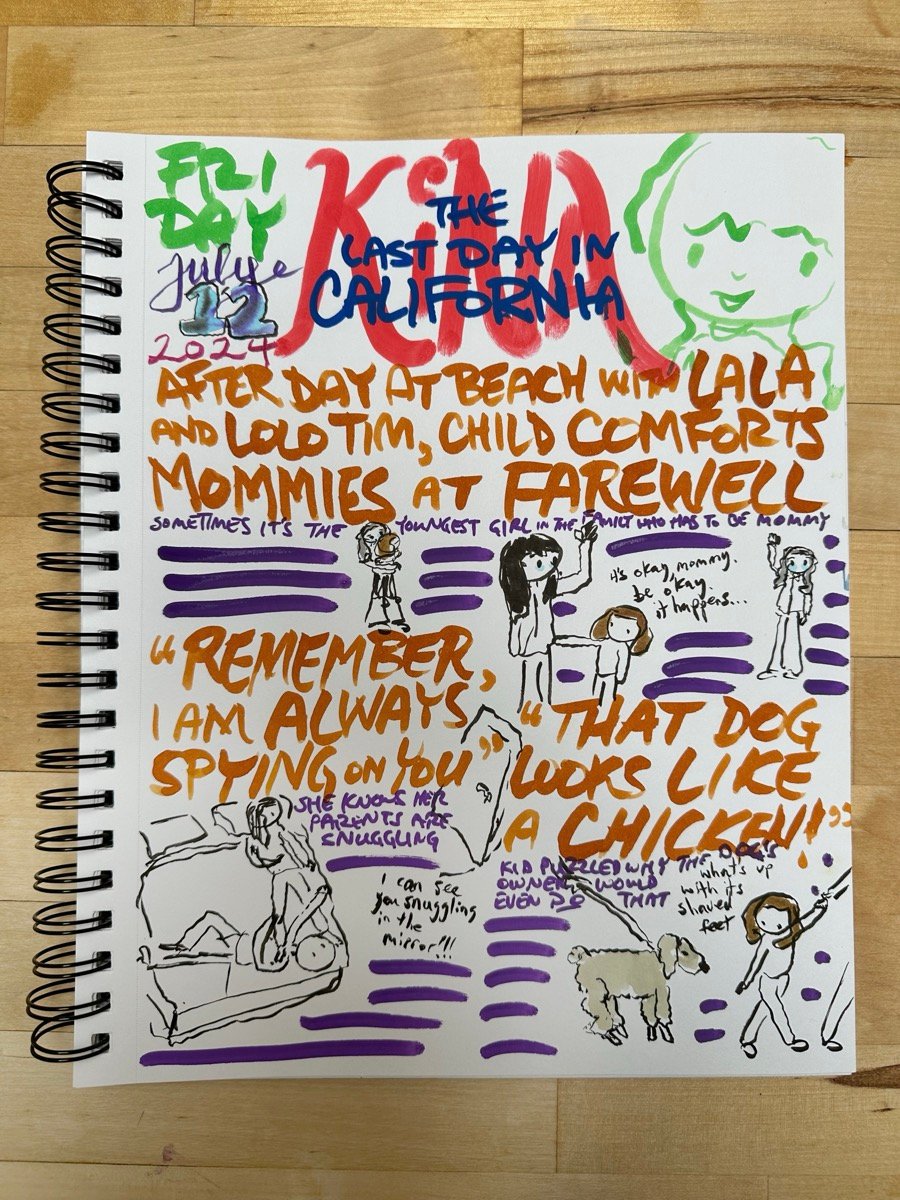 FRI
DAY
July
12
2024
KiNA
THE
LAST DAY IN
CALIFORNIA
AFTER DAY AT BEACH WITH LALA
AND LOLO TIM, CHILD COMFORTS
MOMMIES AT FAREWELL
SOMETIMES IT'S THE YOUNGEST GIRL IN THE FAMILY WHO HAS TO BE MOMMY
it's okay, mommy.
be okay.
it happens...
"REMEMBER,
I AM ALWAYS
SPYING ON YOU"
SHE KNOWS HER
PARENTS ARE
SNUGGLING
I can see
you snuggling
in the
mirror!!!
"THAT DOG
LOOKS LIKE
A CHICKEN!"
KID PUZZLED WHY THE DOG'S
OWNER WOULD
EVEN DO THAT
what's up
with its
shaved
feet